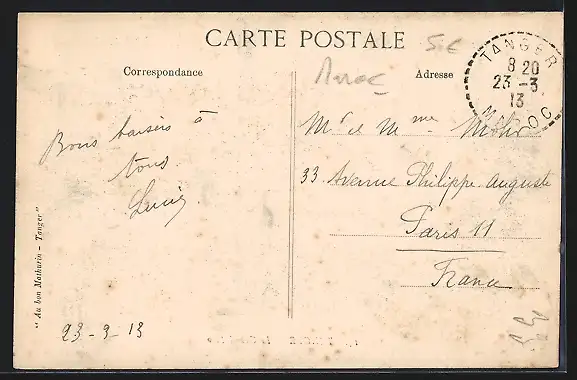 CARTE POSTALE
5 €
Correspondance
Maroc
Adresse
TANGER
8 20
23 - 3
13
MAROC
Bons baisers à
tous.
"Au bon Mathurin - Tanger"
23-3-13
Mr et Mme
33 Avenue Philippe-Auguste
Paris 11
France